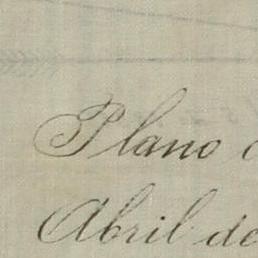 Plano
Abril de